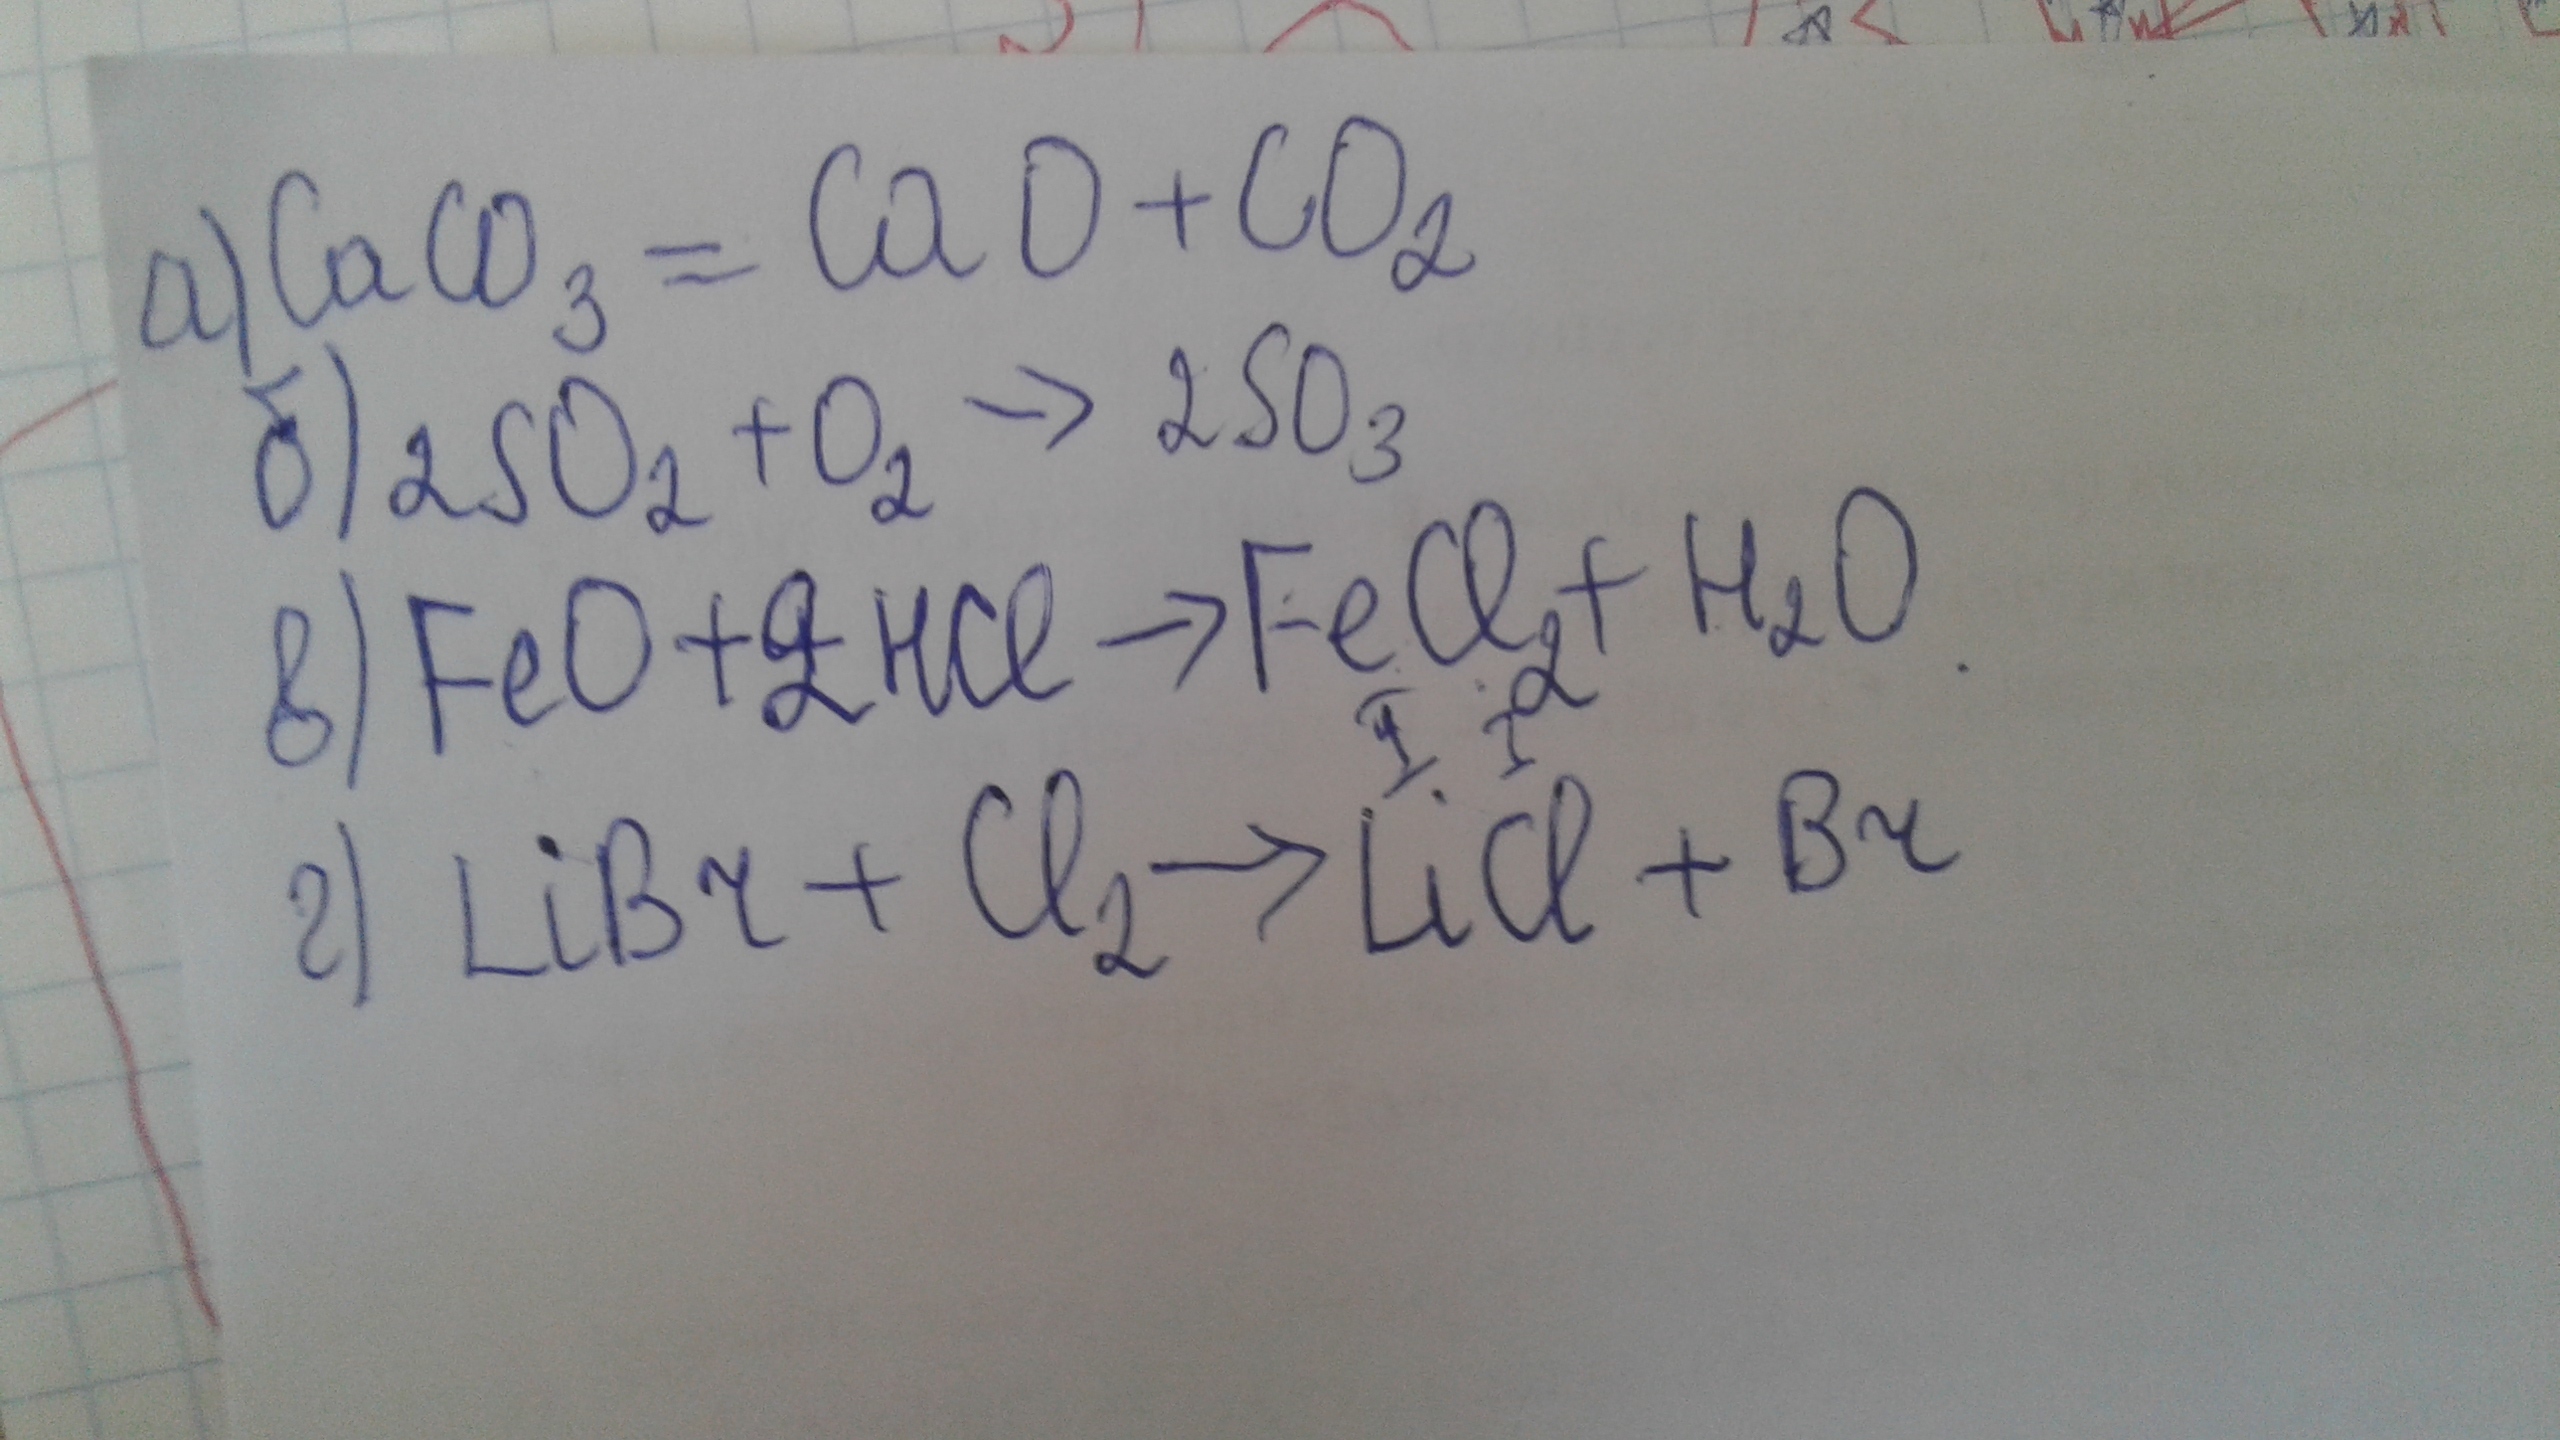 а) CaCO₃ = CaO + CO₂
б) 2SO₂ + O₂ → 2SO₃
в) FeO + 2HCl → FeCl₂ + H₂O.
I I
г) LiBr + Cl₂ → LiCl + Br